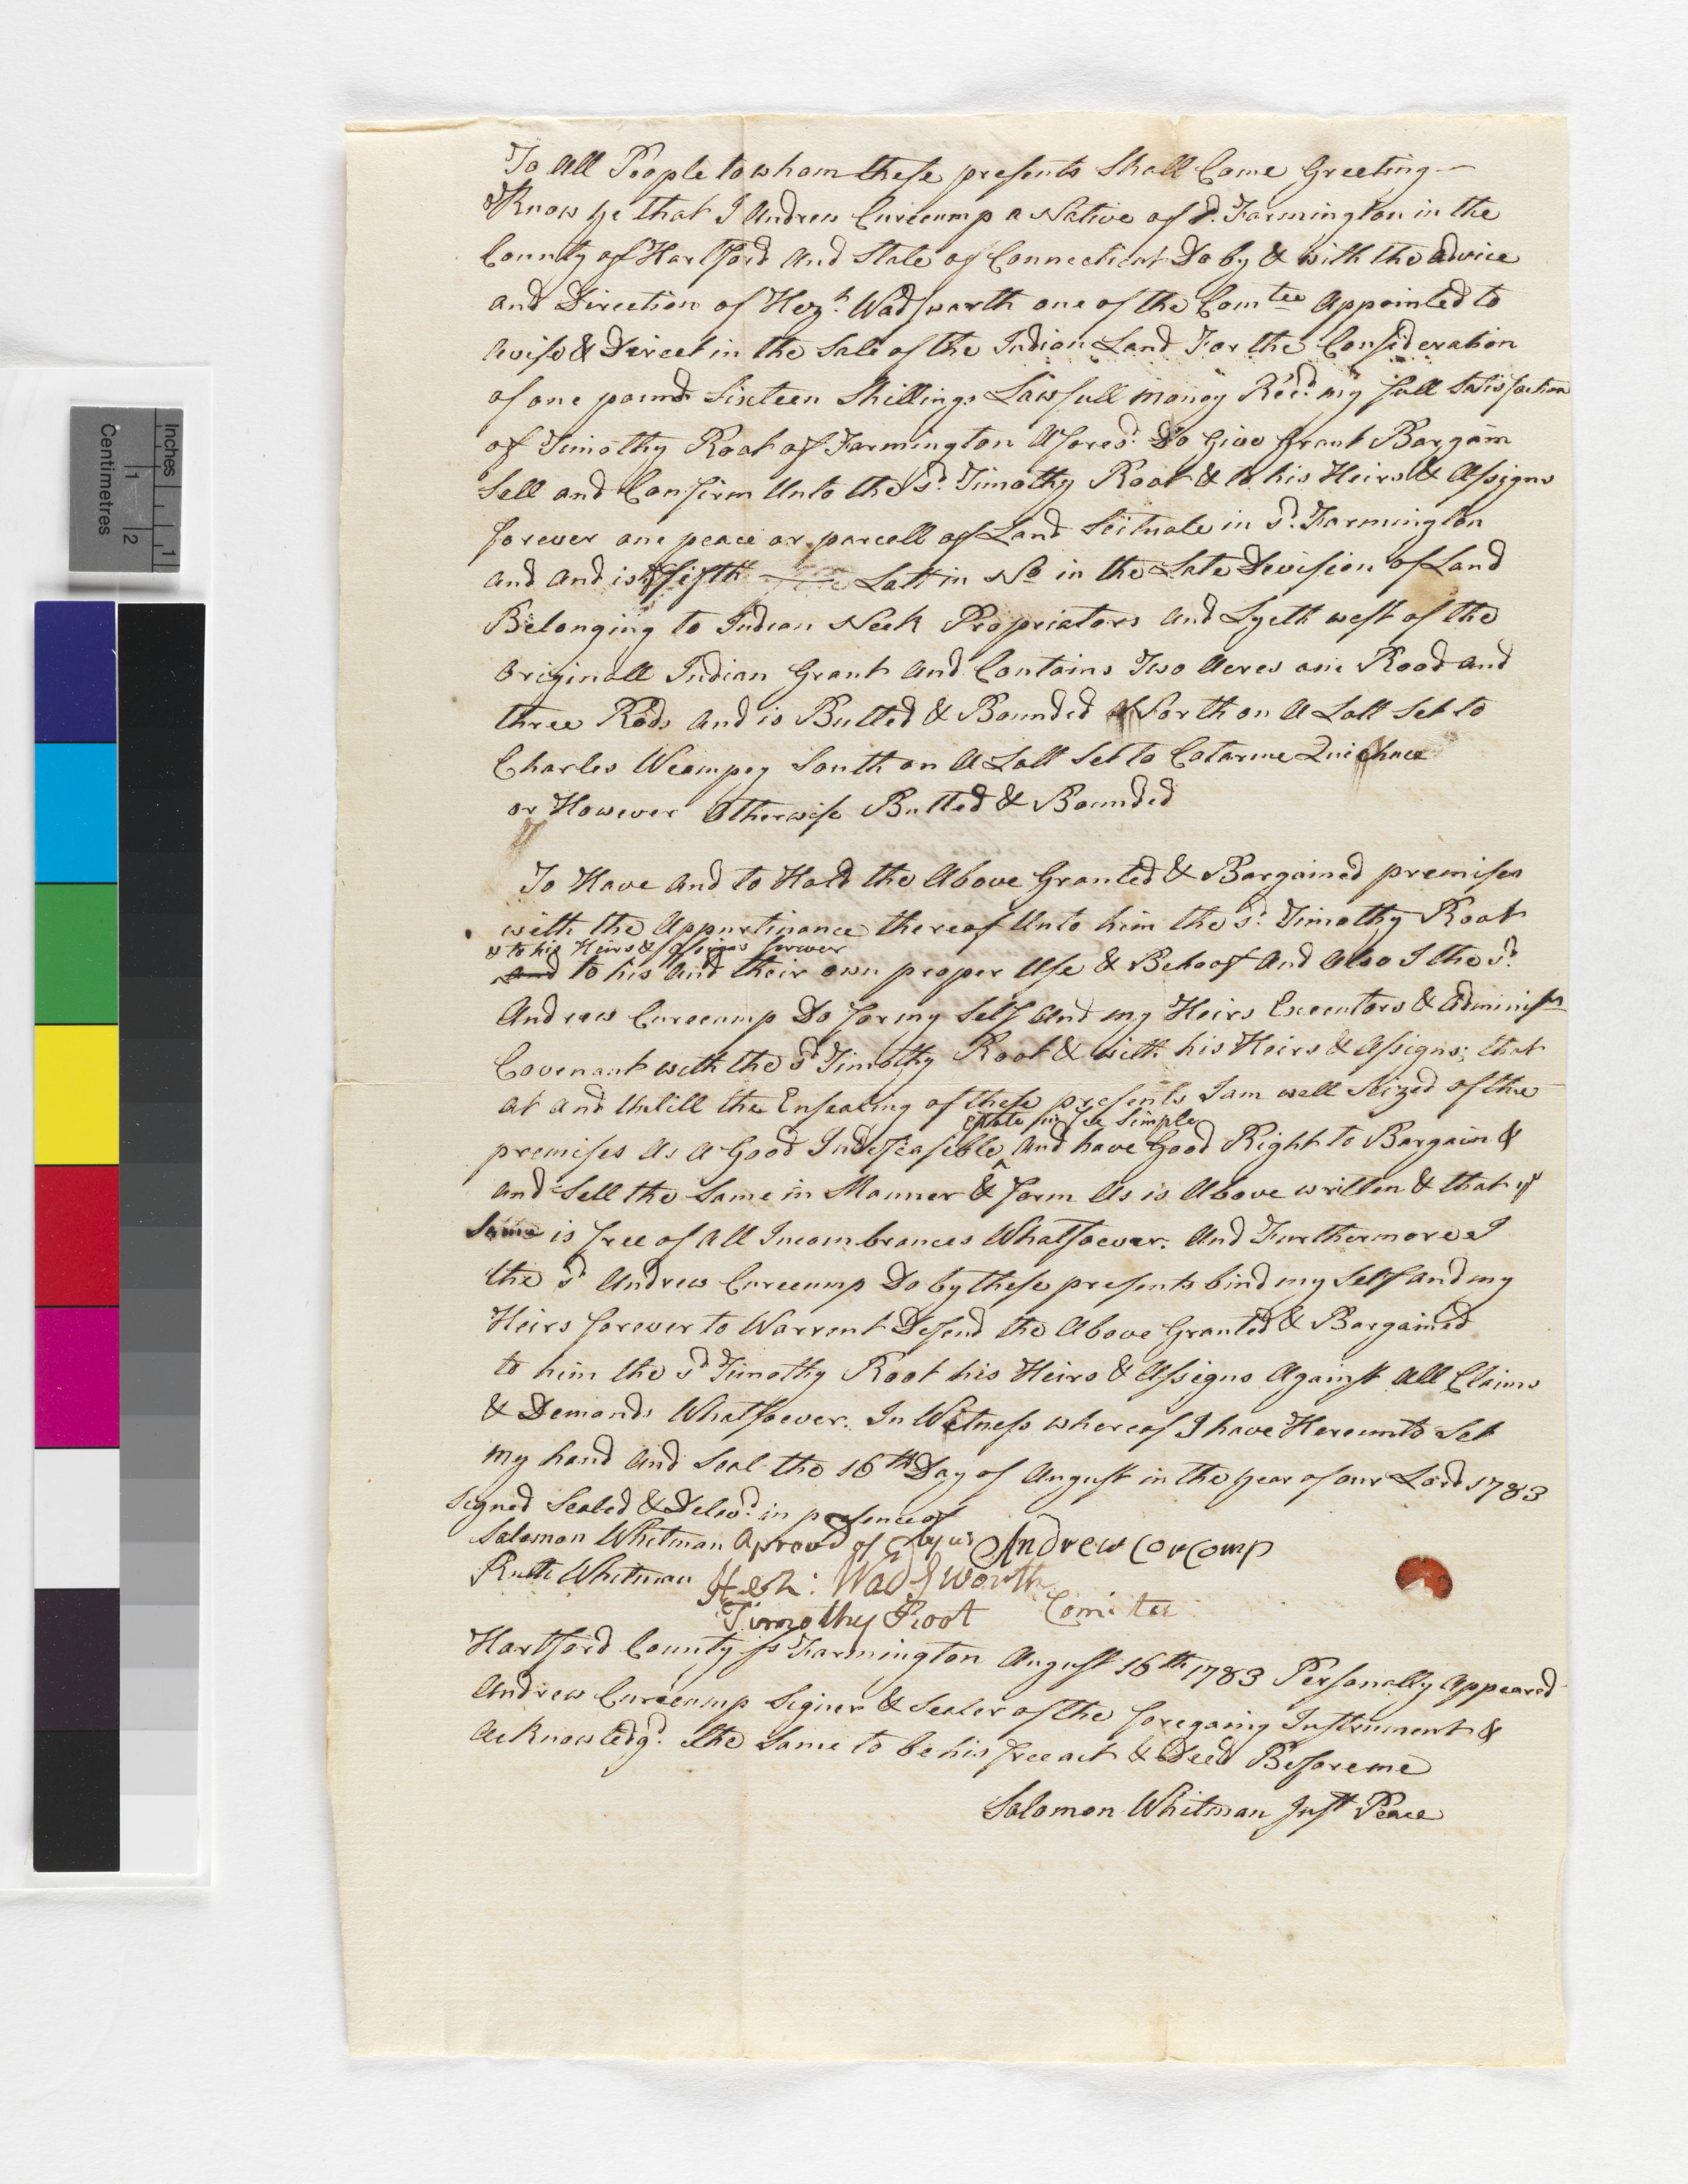 Inches
Centimetres
1
2
1
To All People to whom these presents Shall Come Greeting —
Know ye that I Andrew Curcump a Native of sd. Farmington in the
County of Hartford And State of Connecticut Do by & with the advice
and Direction of Hezh. Wadsworth one of the Comtee Appointed to
Avise & Direct in the Sale of the Indian Land For the Consideration
of one pound Sixteen Shillings Lawfull money Recd. my full Satisfaction
of Timothy Root of Farmington Aforesd. Do Give Grant Bargain
Sell and Confirm Unto the sd. Timothy Root & to his Heirs & Assigns
forever one peace or parcell of Land Scituate in sd. Farmington
and and is fifth Lott in No in the Late Devision of Land
Belonging to Indian Neck Propriators And Lyeth west of the
Originall Indian Grant And Contains Two Acres one Rood and
three Rods And is Butted & Bounded North on A Lott Set to
Charles Weampey South on A Lott Set to Catarine Quichace
or However Otherwise Butted & Bounded
To Have And to Hold the Above Granted & Bargained premises
with the Appurtinance thereof Unto him the sd. Timothy Root
& to his Heirs & Assigns forever
and to his and their own proper Use & Behoof And Also I the sd.
Andrew Curcump Do for my Self And my Heirs Executors & Administrs
Covenant with the sd Timothy Root & with his Heirs & Assigns; that
at and Untill the Ensealing of these presents I am well Seized of the
estate in fee Simple
premises As A Good Indefeasible ^ And have Good Right to Bargain &
and Sell the Same in Manner & form As is Above written & that ye
Same is free of All Incombrances Whatsoever. And Furthermore I
the sd Andrew Curcump Do by these presents bind my Self and my
Heirs forever to Warrent Defend the Above Granted & Bargained
to him the sd Timothy Root his Heirs & Assigns Against All Claims
& Demands Whatsoever. In Witness whereof I have Hereunto Set
my hand And Seal the 16th Day of August in the year of our Lord 1783
Signed Sealed & Delivd. in presence of
Solomon Whitman Aproved of by us Andrew Corcomp
Ruth Whitman Hezh: Wadsworth
Timothy Root Comitee
Hartford County ss Farmington August 16th 1783 Personally Appeared
Andrew Curcump Signer & Sealer of the foregoing Instrument &
Acknowledgd. the Same to be his free act & Deed Before me
Solomon Whitman Just Peace